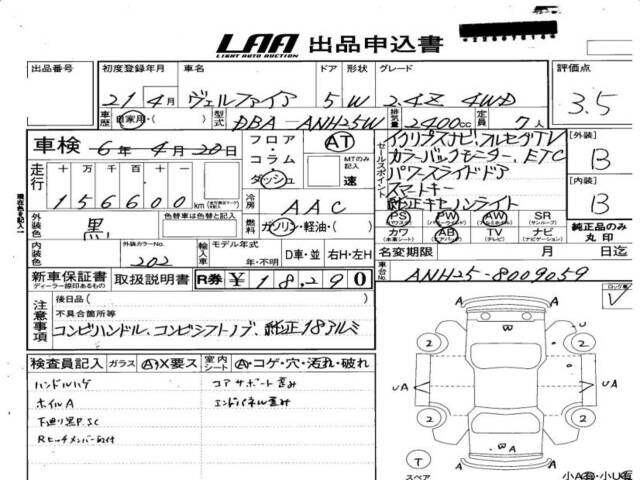 LAA 出品申込書
LIGHT AUTO AUCTION
出品番号 初度登録年月 車名 ドア 形状 グレード 評価点
21年4月 ヴェルファイア 5 W 2.4Z 4WD 3.5
車歴 自家用・ 型式 DBA-ANH25W 排気量 2400cc 定員 7人
車検 6年4月20日
フロア・コラム・ダッシュ AT MTのみ記入 速
セールスポイント
イクリプスナビ、フルセグTV
カラーバックモニター、ETC
パワースライドドア
スマートキー
純正キセノンライト
[外装] B
[内装] B
走行 十万 万 千 百 十
156600 km
冷房 AAC
外装色 黒 色替車は色替と記入
燃料 ガソリン・軽油・( )
PS PW AW SR
(サンルーフ)
カワ AB TV ナビ
(本革シート) (エアバッグ) (テレビ) (ナビゲーション)
純正品のみ丸印
内装色 外装カラーNo. 202 輸入車 モデル年式 年・不明 D車・並 右H・左H
名変期限 月 日迄
新車保証書 取扱説明書 R券 ¥18,290
ディーラー捺印あるもの
車台No. ANH25-8009059
注意事項
後日品( )
不具合箇所等
コンビハンドル、コンビシフトノブ、純正18アルミ
検査員記入 ガラス A・X要ス 室内シート A・コゲ・穴・汚れ・破れ
ハンドルハゲ コアサポート歪み
ホイルA エンドパネル歪み
下廻り黒P.SC
Rヒッチメンバー取付
A
W
2 2
UA UA
2 2
W A
A
T
スペア
小A有・小U有